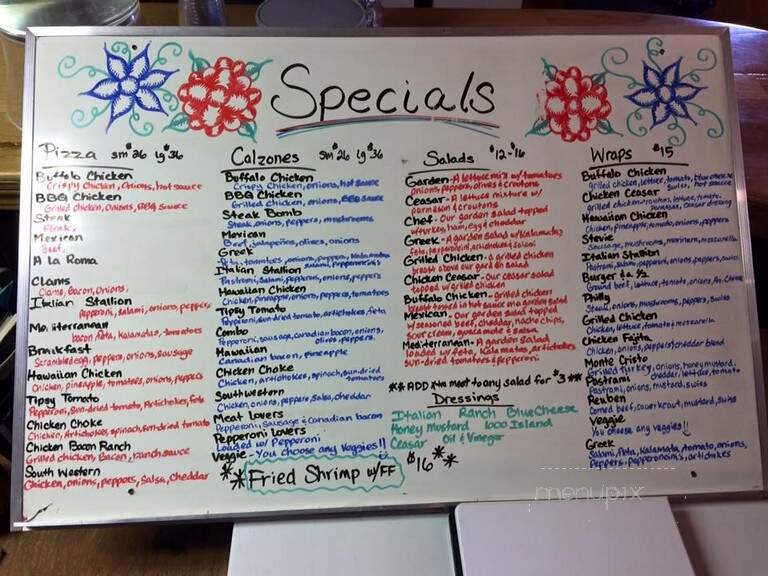 Specials
Pizza sm $26 lg $36
Buffalo Chicken
Crispy Chicken, Onions, hot sauce
BBQ Chicken
Grilled Chicken, Onions, BBQ Sauce
Steak
Steak,
Mexican
Beef,
A la Roma
Clams
Clams, Bacon, Onions,
Italian Stallion
Pepperoni, salami, onions, peppers
Mediterranean
bacon, feta, Kalamatas, tomatoes
Breakfast
Scrambled egg, peppers, onions, sausage
Hawaiian Chicken
Chicken, pineapple, tomatoes, onions, peppers
Tipsy Tomato
Pepperoni, sun-dried tomatoes, Artichokes, feta
Chicken Choke
Chicken, Artichokes, spinach, sun-dried tomato
Chicken Bacon Ranch
Grilled chicken, Bacon, ranch sauce
South Western
Chicken, onions, peppers, Salsa, Cheddar
Calzones sm $26 lg $36
Buffalo Chicken
Crispy Chicken, onions, hot sauce
BBQ Chicken
Grilled Chicken, onions, BBQ sauce
Steak Bomb
Steak, onions, peppers, mushrooms
Mexican
Beef, jalapeños, olives, onions
Greek
Feta, tomatoes, onions, peppers, Kalamatas
salami, pepperoncini's
Italian Stallion
Pastrami, Salami, pepperoni, onions, peppers
Hawaiian Chicken
Chicken, pineapple, onions, peppers, tomatoes
Tipsy Tomato
Pepperoni, sun dried tomatoes, artichokes, feta
Combo
Pepperoni, sausage, canadian bacon, onions,
olives, peppers
Hawaiian
Canadian bacon, pineapple
Chicken Choke
Chicken, Artichokes, spinach, sun-dried
tomatoes
Southwestern
Chicken, onions, peppers, salsa, cheddar
Meat Lovers
Pepperoni, Sausage & Canadian bacon
Pepperoni Lovers
Loaded w/ Pepperoni
Veggie - You choose any Veggies!!
**Fried Shrimp w/FF $16**
Salads $12-$16
Garden - A lettuce mix w/ tomatoes
Onions, peppers, olives & croutons
Ceasar - A lettuce mixture w/
parmesan & croutons
Chef - Our garden salad topped
w/turkey, ham, egg & cheddar
Greek - A garden salad w/Kalamatas
feta, pepperoncini, artichokes & salami
Grilled Chicken - a grilled chicken
breast above our garden salad
Chicken Ceasar - Our ceasar salad
topped w/ grilled chicken
Buffalo Chicken - grilled chicken
breast tossed in sauce on a garden salad
Mexican - Our garden salad topped
w/seasoned beef, cheddar, nacho chips,
sour cream, guacamole & salsa
Mediterranean - A garden salad
loaded w/ feta, Kalamatas, artichokes
sun-dried tomatoes & pepperoni
** ADD xtra meat to any salad for $3 **
Dressings
Italian Ranch Blue Cheese
Honey Mustard 1000 Island
Ceasar Oil & Vinegar
Wraps $15
Buffalo Chicken
Grilled chicken, lettuce, tomato, blue cheese
Swiss, hot sauce
Chicken Ceasar
Grilled chicken, croutons, lettuce, tomato,
parmesan, Ceasar dressing
Hawaiian Chicken
Chicken, pineapple, tomato, onions, peppers
Stevie
Sausage, mushrooms, marinara, mozzarella
Italian Stallion
Pastrami, salami, pepperoni, onions, peppers, swiss
Burger
Ground beef, lettuce, tomato, onions,
Philly
Steak, onions, mushrooms, peppers, Swiss
Grilled Chicken
Chicken, lettuce, tomato & mozzarella
Chicken Fajita
Chicken, onions, peppers, cheddar blend
Monte Cristo
Grilled turkey, onions, honey mustard,
cheddar, lettuce, tomato
Pastrami
Pastrami, onions, mustard, swiss
Reuben
Corned beef, sauerkraut, mustard, swiss
Veggie
You choose any veggies!!
Greek
Salami, feta, Kalamata, tomato, onions,
Peppers, pepperoncini's, artichokes
menupix